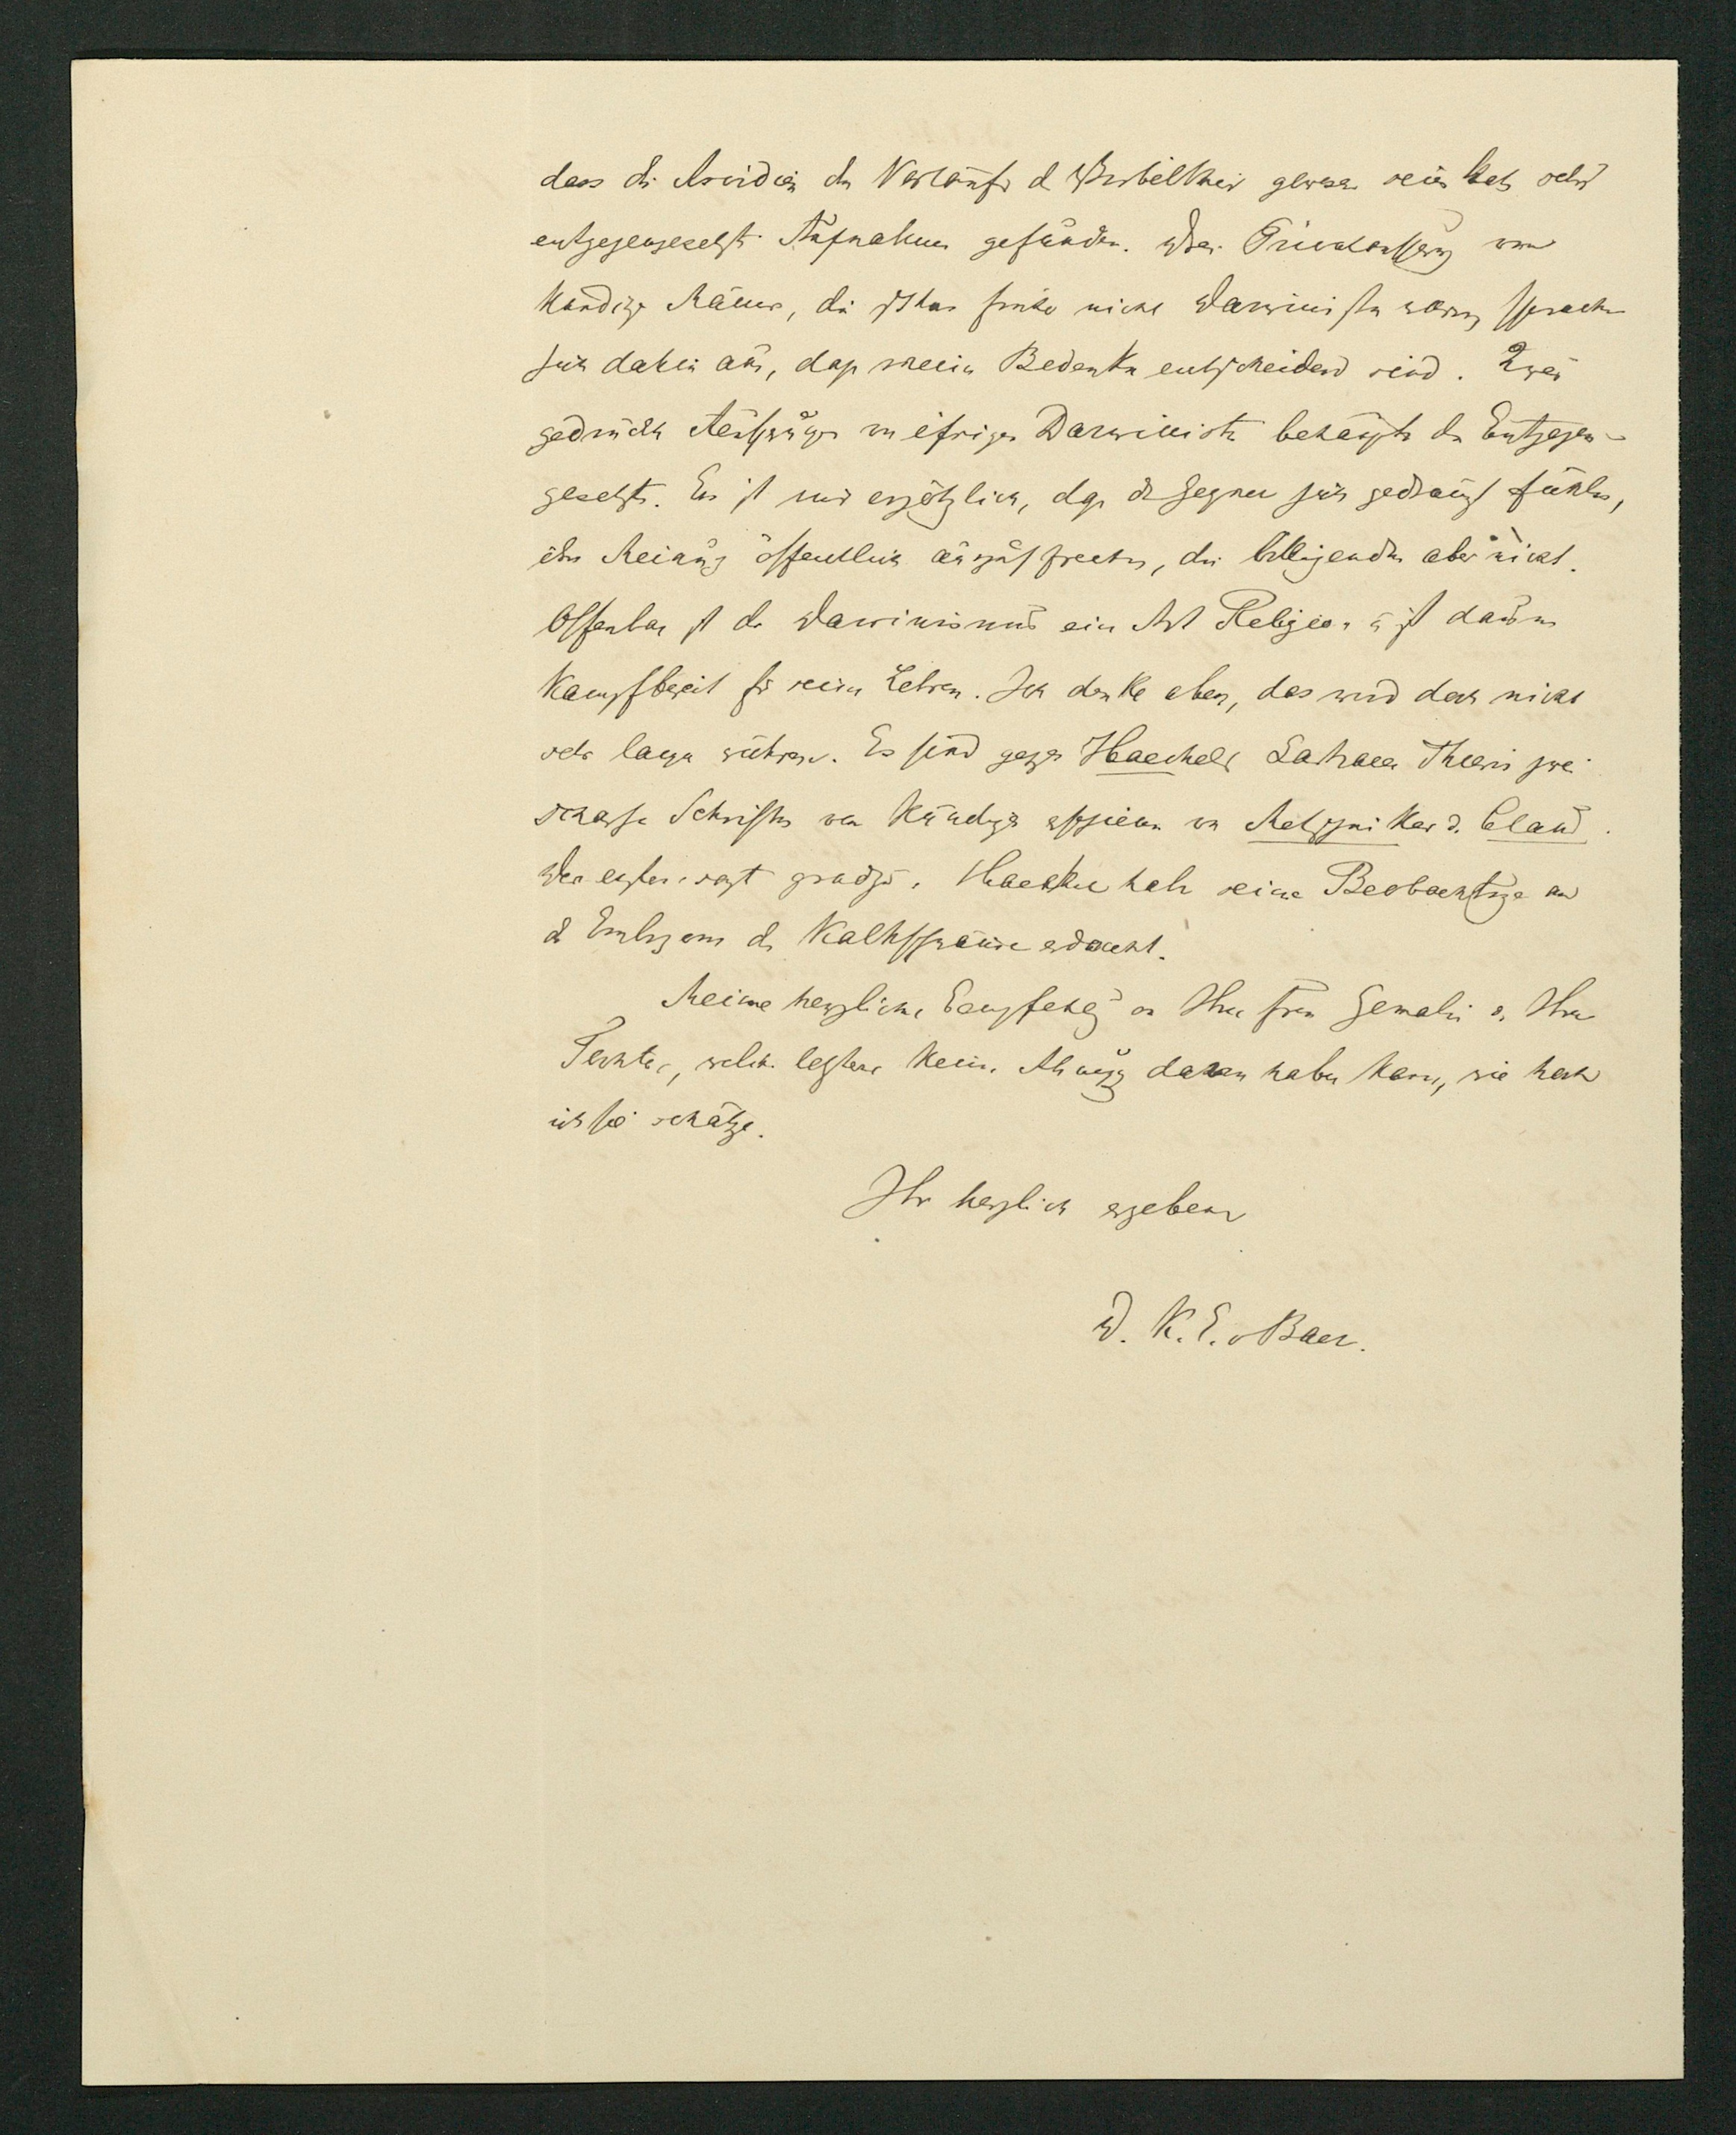 dass die Ascidien die Vorläufer d Wirbelthier gewesen seien hat sehr
entgegengesetzte Aufnahme gefunden. Drei Privatäusserung von
Kundigen Männer, die früher nicht Darwinisten waren, sprachen
sich dahin aus, daß meine Bedenken entscheidend sind. Zwei
gedruckte Aeußerungen von eifrigen Darwinisten behaupten das Entgegen-
gesetzte. Es ist mir ergötzlich, daß die Gegner sich gedrängt fühlen,
ihre Meinung öffentlich auszusprechen, die billigenden aber nicht.
Offenbar ist der Darwinismus eine Art Religion u ist darum
Kampfbereit für seine Lehren. Ich denke aber, das wird doch nicht
sehr lange währen. Es sind gegen Haeckels Gastraea Theorie zwei
scharfe Schriften von Kundigen erschienen von Metschnikov u. Claus.
Der erstere sagt gradezu, Haeckel habe seine Beobachtungen an
d Embryonen der Kalkschwämme erdacht.
Meine herzliche Empfehlung an Ihre Frau Gemalin u. Ihre
Tochter, welche letztere keine Ahnung davon haben kann, wie hoch
ich sie schätze.
Ihr herzlich ergebener
D. K. E. v Baer.